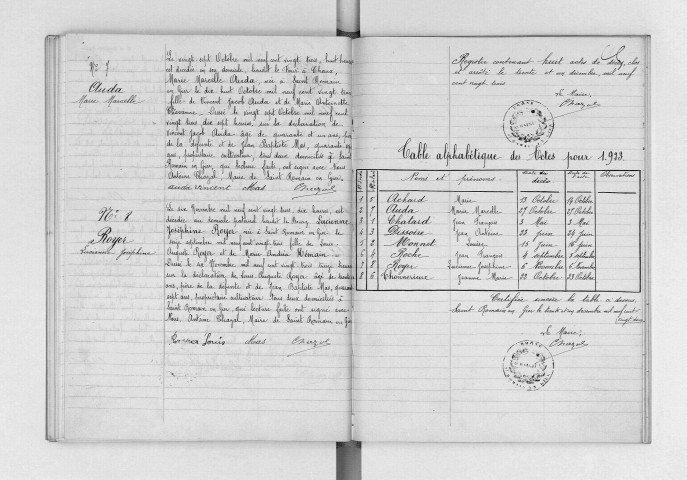 N° 7
Auda
Marie Marcelle
Le vingt sept Octobre mil neuf cent vingt trois, huit heures
est décédée en son domicile, lieudit le Four à Chaux,
Marie Marcelle Auda, née à Saint Romain
en Gier le dix huit Octobre mil neuf cent vingt trois
fille de Vincent Jacob Auda et de Marie Antoinette
Dressé le vingt sept Octobre mil neuf cent
vingt trois dix sept heures, sur la déclaration de
Vincent Jacob Auda âgé de quarante et un ans,
de la défunte et de Jean Baptiste Mas, quarante
ans, propriétaire cultivateur, tous deux domiciliés à Saint
Romain en Gier, qui lecture faite, ont signé avec Nous
Antoine Chazal, Maire de Saint Romain en Gier.
auda vincent Mas Chazal
N° 8
Royer
Lucienne Joséphine
Le six Novembre mil neuf cent vingt trois, dix heures, est
décédée au domicile paternel lieudit le Bourg Lucienne
Joséphine Royer née à Saint Romain en Gier le
septembre mil neuf cent vingt trois fille de Louis
Auguste Royer et de Marie
Dressé le six Novembre mil neuf cent vingt trois treize heures
sur la déclaration de Louis Auguste Royer âgé de
ans, père de la défunte et de Jean Baptiste Mas, quarante
sept ans, propriétaire cultivateur tous deux domiciliés à
Saint Romain en Gier, qui lecture faite ont signé avec
Nous, Antoine Chazal, Maire de Saint Romain en Gier
Royer Louis Mas Chazal
Registre contenant huit actes de décès, clos
et arrêté le trente et un décembre, mil neuf
cent vingt trois
Le Maire,
Chazal
Table alphabétique des Actes pour 1923.
Noms et prénoms Date du décès Date de l'acte Observations
1 5 Achard Marie 13 Octobre 14 Octobre
2 7 Auda Marie Marcelle 27 Octobre 27 Octobre
3 1 Chatard Jean François 3 Mai 3 Mai
4 3 Dissoire Jean Antoine 23 juin 24 juin
5 2 Monnet Louise 15 juin 16 juin
6 4 Roche Jean François 4 septembre 5 septembre
7 8 Royer Lucienne Joséphine 6 Novembre 6 Novembre
8 6 Jeanne Marie 22 Octobre 23 Octobre
Certifiée sincère la table ci dessus,
Saint Romain en Gier le trente et un décembre mil neuf cent
vingt trois
Le Maire,
Chazal